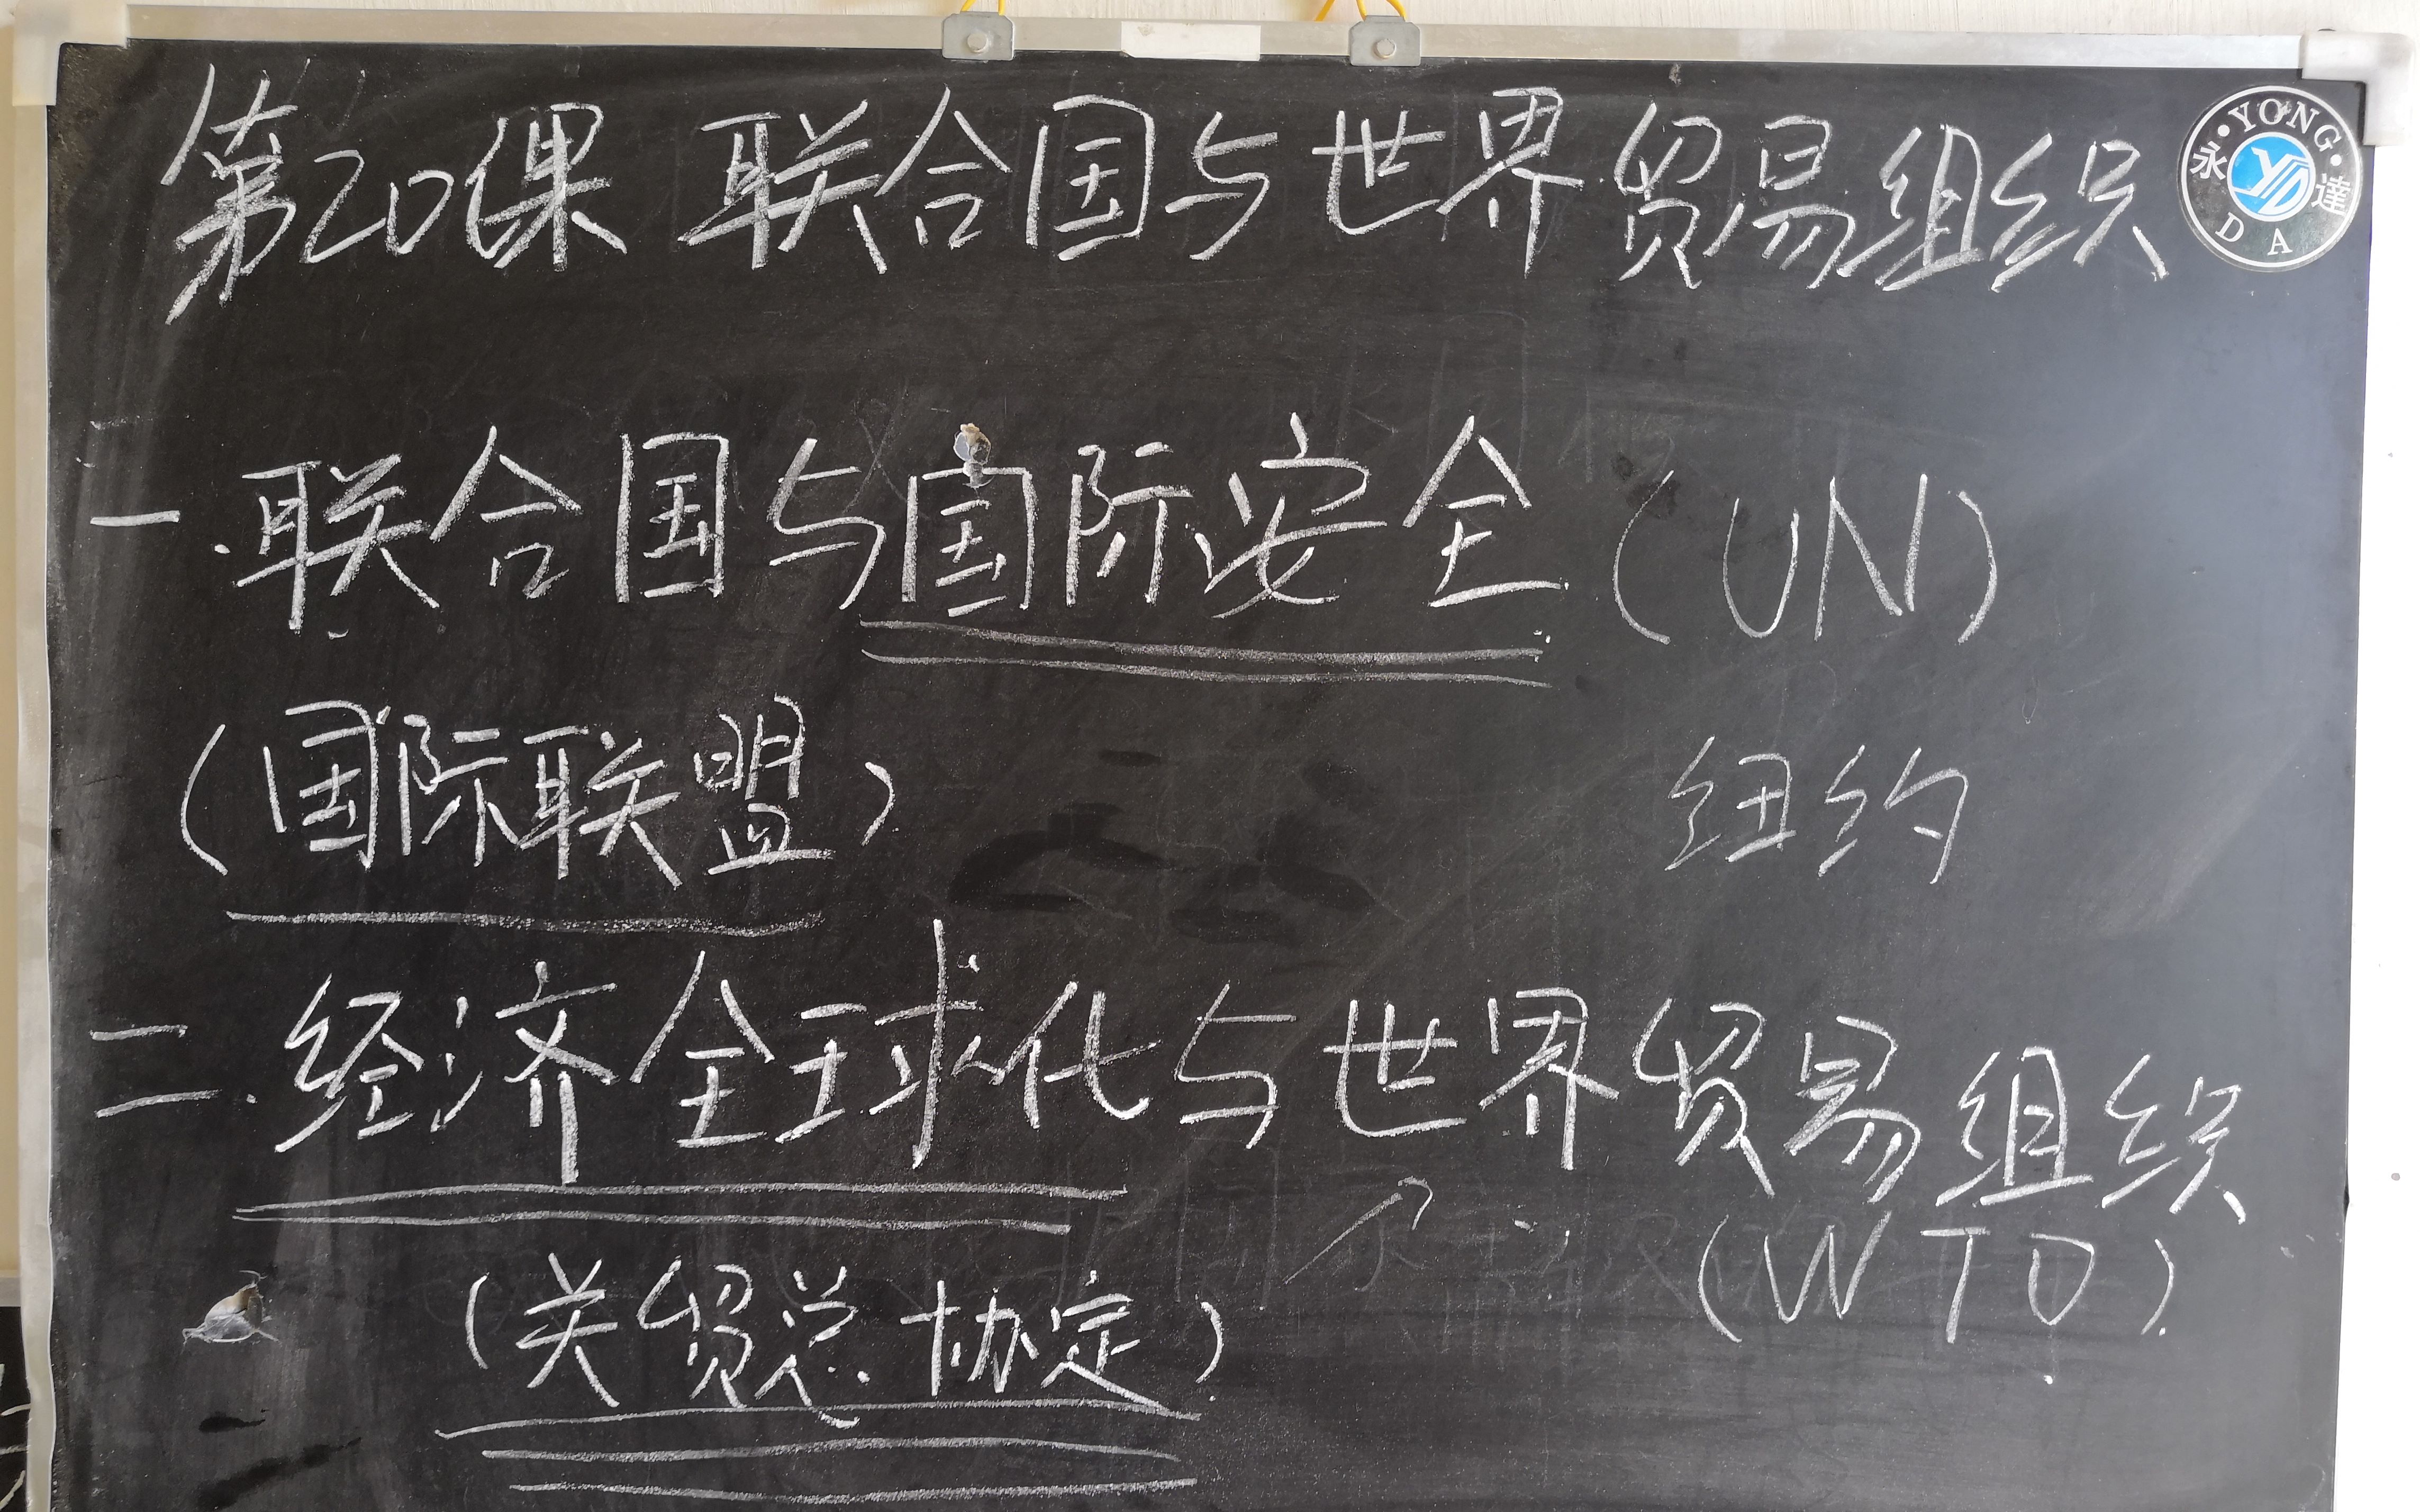 第20课 联合国与世界贸易组织
永 YONG 達 DA
一.联合国与国际安全 (UN)
(国际联盟)
纽约
二.经济全球化与世界贸易组织
(WTO)
(关贸总协定)